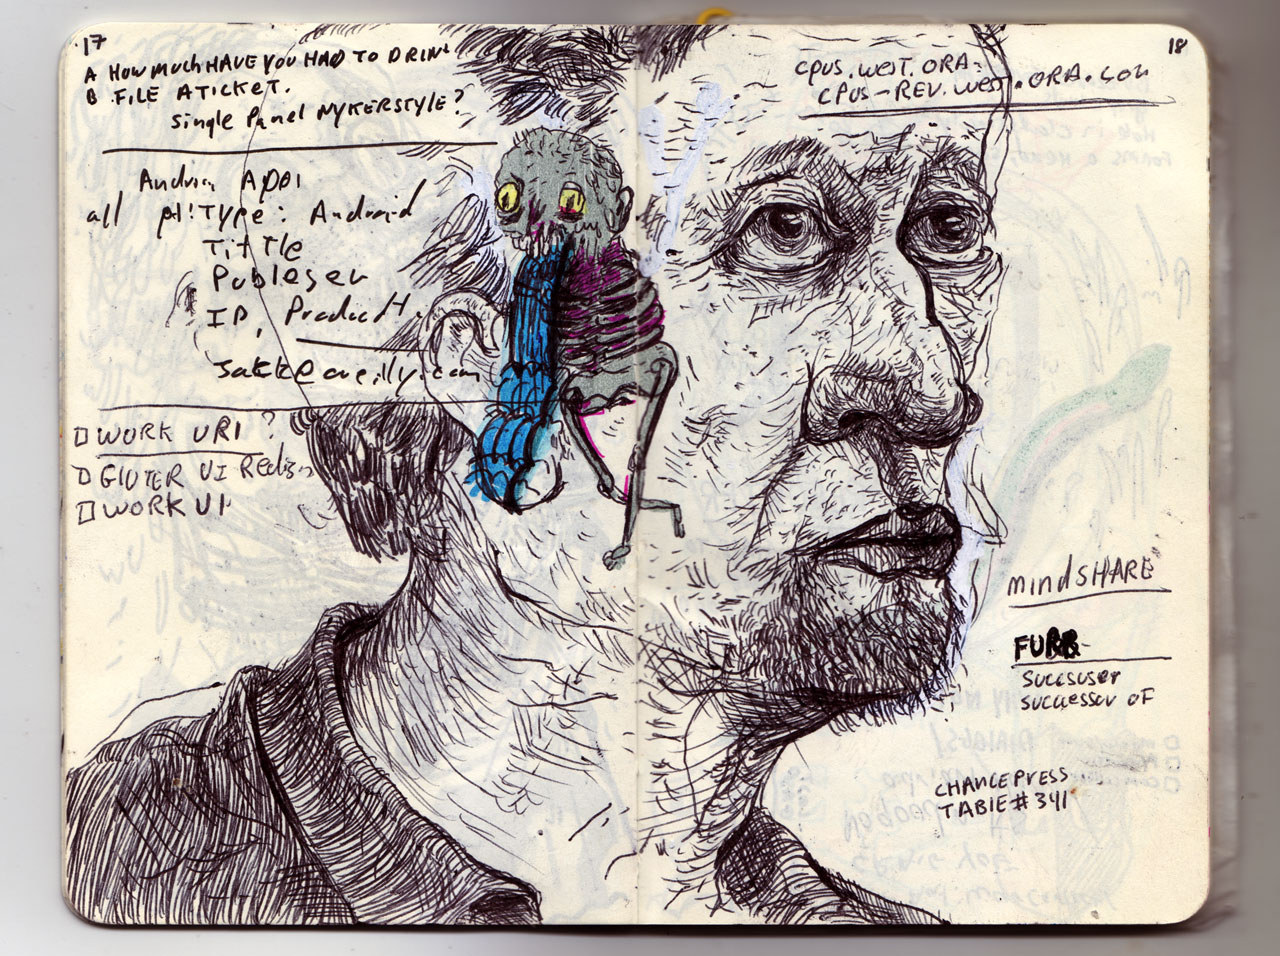 17
A HOW MUCH HAVE YOU HAD TO DRINK
B FILE A TICKET.
Single Panel NYKERSTYLE?
all pl! Type: Android
Tittle
Publeser
ID, Product
WORK URI ?
GlUTER UI Redsn
WORK UI
18
cpus.west.ORA.
CPUS-REV.WEST.ORA.COM
mindSHARE
FURB
Sucsuser
Successor of
CHANCE PRESS
TABLE # 341